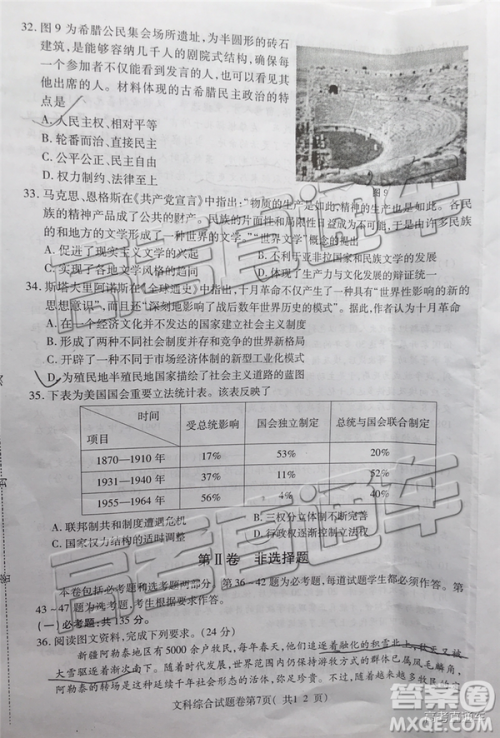 32. 图9为希腊公民集会场所遗址，为半圆形的砖石
建筑，是能够容纳几千人的剧院式结构，能确保每
一个参会者发言时，面对所有的人，发言者能够看
其他出席的人。材料体现的古希腊民主政治的特
点是
A. 人民主权、相对平等
B. 轮番而治、直接民主
C. 公民参与、集体管理
D. 权力制约、法律至上
图9
33. 马克思、恩格斯在《共产党宣言》中指出：“物质的生产是如此，精神的生产也是如此。各民
族的精神产品成了公共的财产。民族的片面性和局限性日益成为不可能，于是由许多民族的
和地方的文学形成了一种世界的文学。”“世界文学”概念的提出
A. 促进了现实主义文学的兴起
B. 不利亚非拉民族文学的发展
C. 实现各地文学风格的趋同
D. 体现了生产力与文化发展的辩证统一
34. 斯塔夫里阿诺斯在《全球通史》中指出，十月革命不仅产生了一种具有“世界性影响的新的
思想意识”，而且“深刻地影响了战后数年世界历史的模式”。据此，作者认为十月革命
A. 在一个经济文化并不发达的国家建立社会主义制度
B. 形成了两种不同社会制度并存的世界新格局
C. 开创了不同于市场经济体制的新型工业化模式
D. 为殖民地半殖民地国家描绘了社会主义道路的蓝图
35. 下表为美国国会重要立法统计表。该表反映了
时间
项目
受总统影响
国会独立制定
总统与国会联合制定
1870—1910年 17% 53% 20%
1931—1940年 37% 11% 52%
1955—1964年 56% 2% 40%
A. 联邦制共和制度遭遇危机
B. 三权分立体制不断完善
C. 权力结构的适时调整
D. 行政权逐渐控制立法权
第Ⅱ卷 非选择题
本卷包括必考题和选考题两部分。第36－42题为必考题，每道试题学生都必须作答。第
43－47题为选考题，考生根据要求作答。
(一)必考题：共135分。
36. 阅读图文资料，完成下列要求。(24分)
新疆阿勒泰地区有5000余户牧民，每年春天，他们逐渐追逐着融化的积雪北上，秋天又被
大雪驱逐着渐次南下。随着时代发展，世界各国游牧的方式都发生着不同程度的改变，
阿勒泰的转场是
文科综合试题卷第7页(共12页)
高考直通车
答案圈